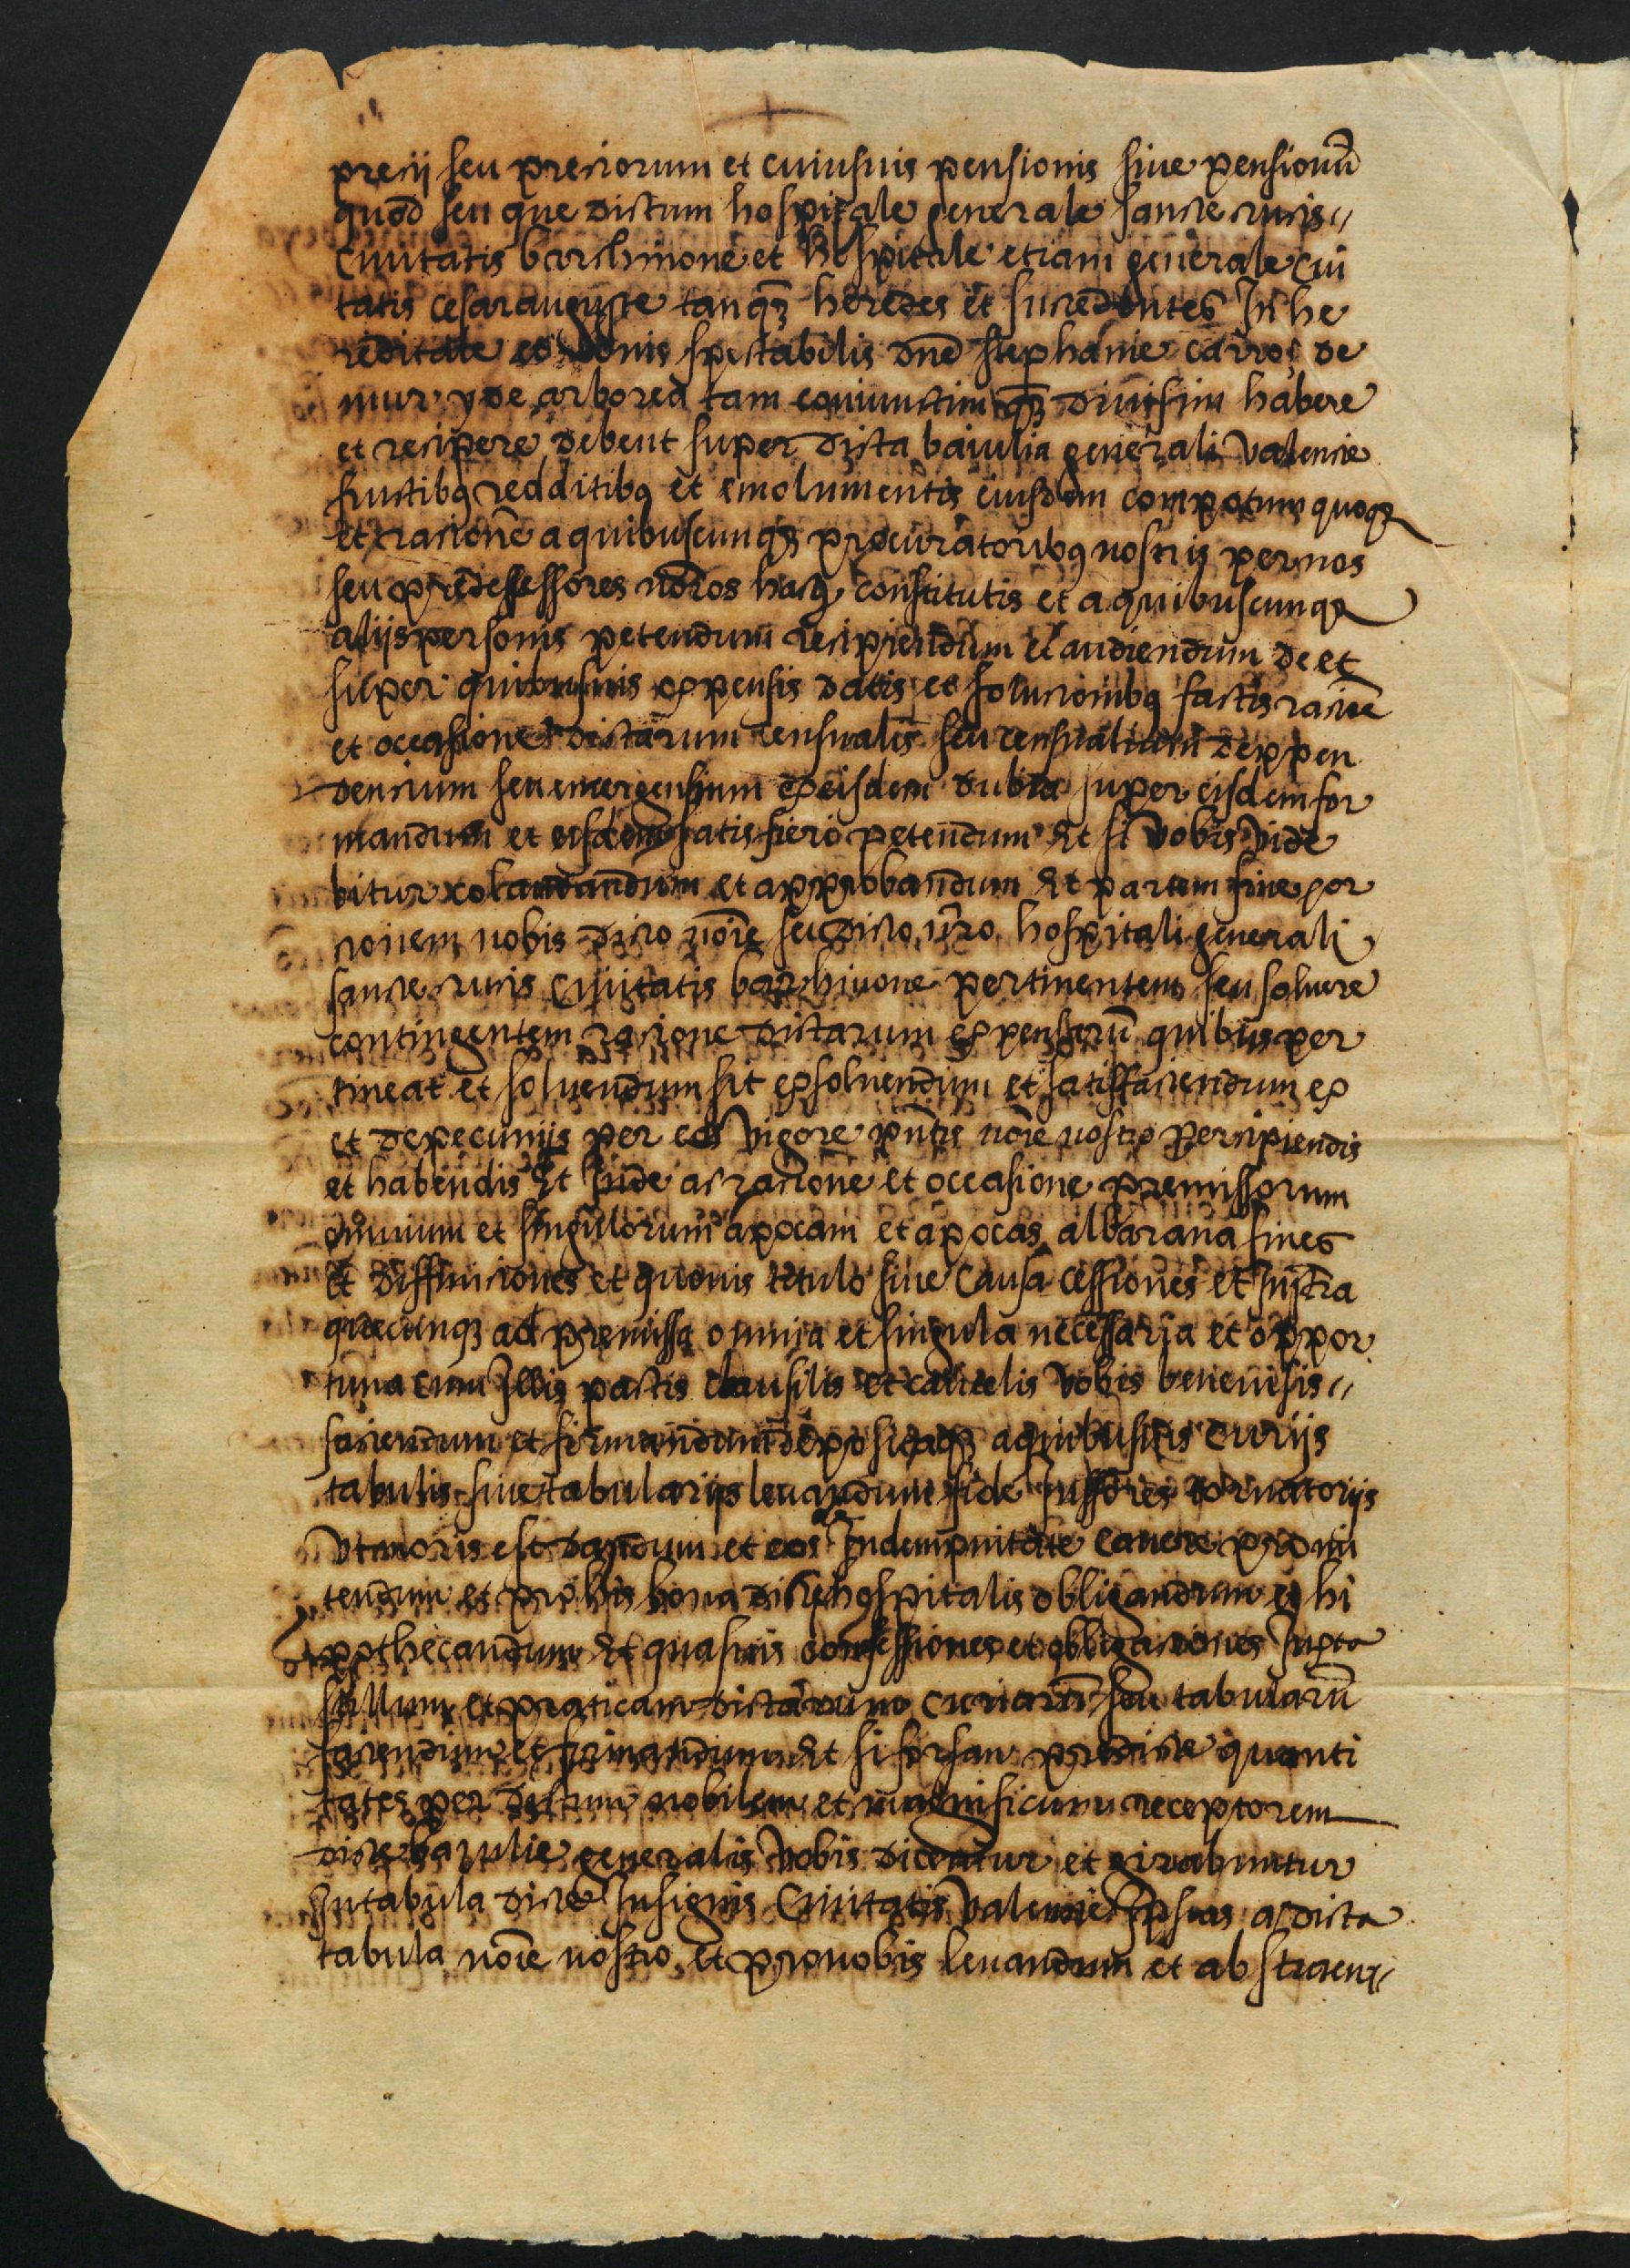 precij seu preciorum et cuiusuis pensionis siue pensionũ
quod seu que dictum hospitale generale sancte crucis //
Ciuitatis barchinone et hospitale etiam generale Ciui
tatis cesarauguste tanqȝ heredes et succedentes In he
reditate et bonis spectabilis dne stephanie carroç de
mur y de arborea tam coniunctim qȝ diuisim habere
et recipere debent super dicta baiulia generali valencie
fructibꝰ redditibꝰ et emolumentis eiusdem compotum quoqȝ
et racionẽ a quibuscunqȝ procuratoribꝰ nostris per nos
seu predecessores nros hactꝰ constitutis et a quibuscunqȝ
alijs personis petendum recipiendum et audiendum de et
super quibusuis expensis datis et solucionibꝰ factis racioẽ
et occasione dictarum censualis seu censualium dexpen
dencium seu emergensium ex eisdem dubia super eisdem for
mandum et eisdem satisfieri petendum Et si vobis vide
bitur collaudandum et approbandum Et partem siue por
cionem nobis dicto noĩe seu dicto nro hospitali generali
sancte crucis Ciuitatis barchinone pertinentem seu soluere
contingentem racione dictarum expensarũ quibus per
tineat et soluendum sit exsoluendum et satisffaciendum ex
et de pecunijs per eos vigore pntis noĩe nostro percipiendis
et habendis Et Inde ac racione et occasione premissorum
omnium et singulorum apocam et apocas albarana fines
et diffiniciones et quouis titulo siue causa cessiones et Instra
quecunqȝ ad premissa omnia et singula necessaria et oppor
tuna cum Illis pactis clausulis et cautelis vobis beneuisis //
faciendum et firmandum depositaqȝ a quibusuis curijs
tabulis siue tabularijs leuandum fide Iussores tornatorijs
vt moris est dandum et eos Indempnitate cauere promi
tendum et pro his bona dicti hospitalis obligandum et hi
pothecandum Et quasuis confessiones et obligaciones Iuxta
stillum et praticam dictarum curiarũ seu tabularũ
faciendum et firmandum Et si forsan predicte quanti
tates per dictum nobilem et magnificum receptorem
dicte baiulie generalis vobis dicentur et girabuntur
In tabula dicte Insignis Ciuitatis valencie Ipsas a dicta
tabula noĩe nostro et pro nobis leuandum et abstraen //